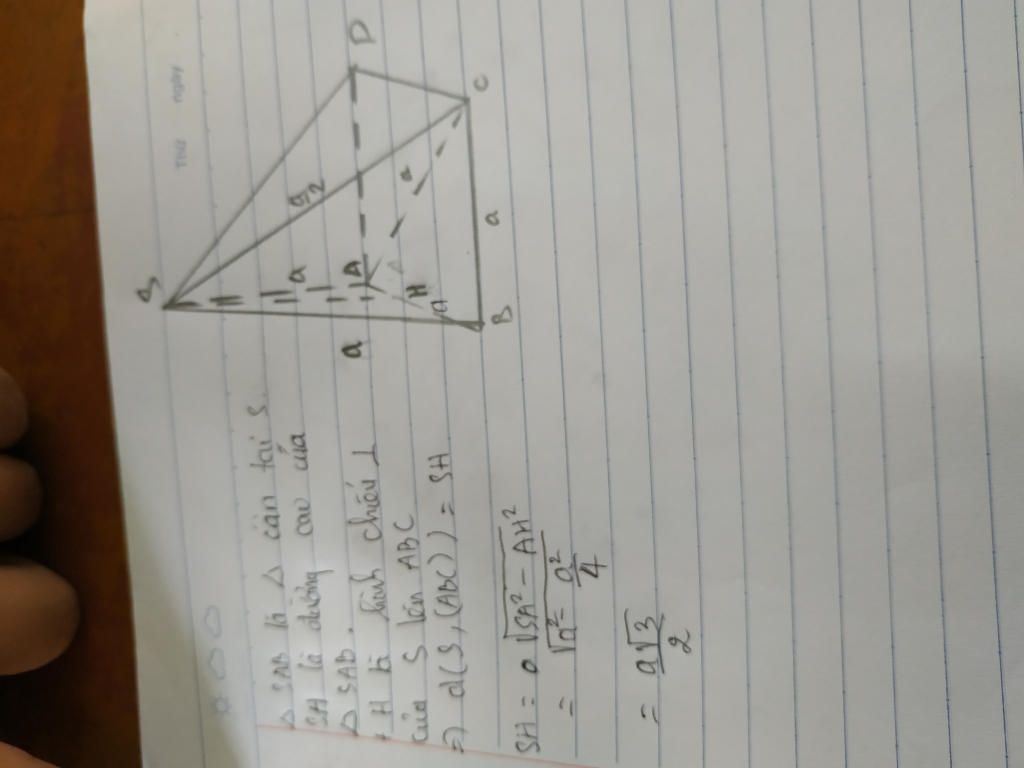 Thứ ngày
S
D
a√2
a
A
a
a
H
C
a
B
Δ SAB là Δ cân tại S.
SH là đường cao của
Δ SAB.
+ H là hình chiếu ⊥
của S lên ABC
=) d(S, (ABC)) = SH
SH = √SA² - AH²
= √a² - a²/4
= a√3/2